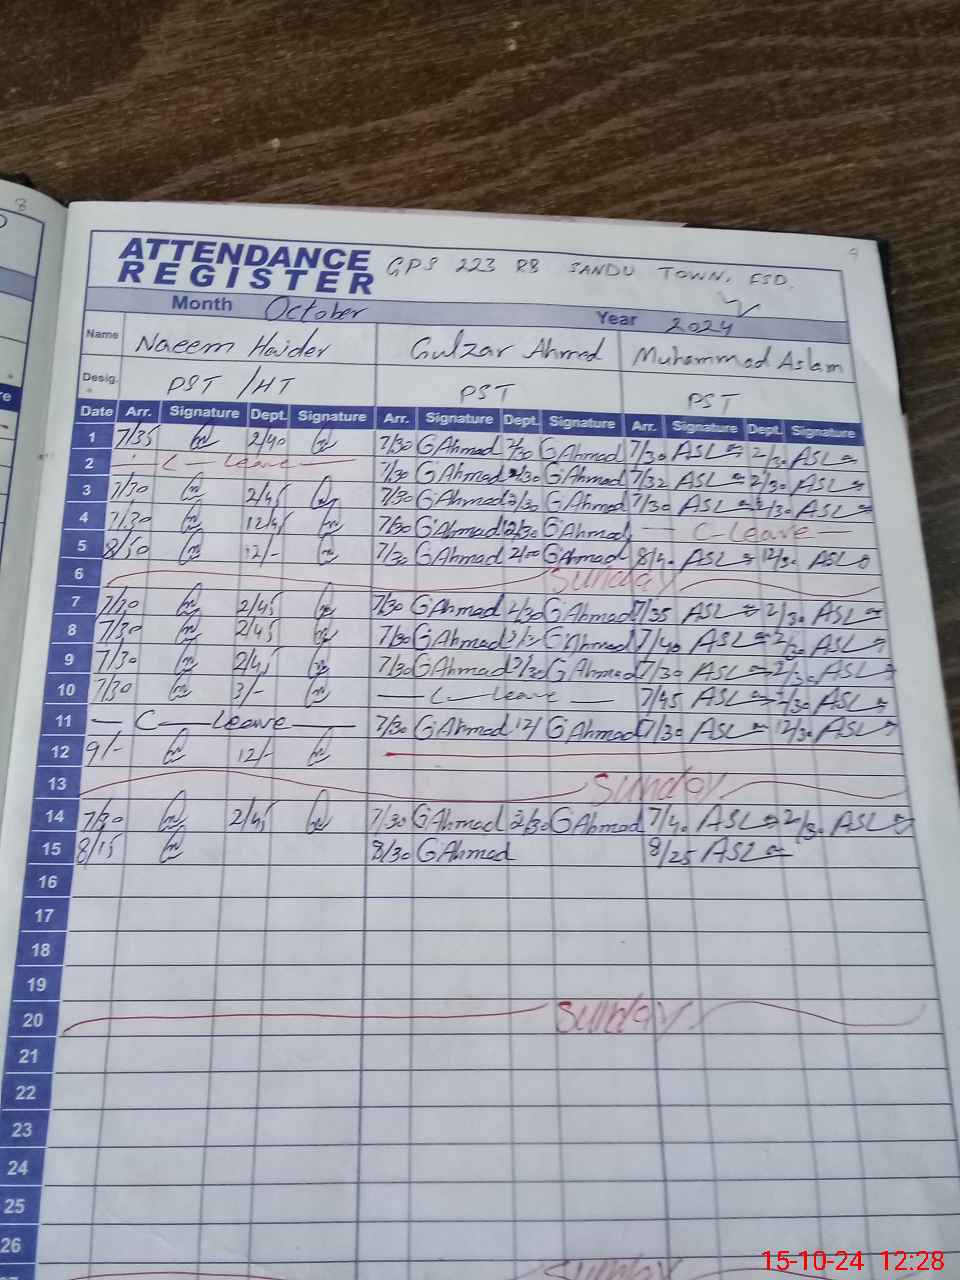 8
9
ATTENDANCE
REGISTER
GPS 223 RB SANDU TOWN, FSD.
Month October Year 2024
Name Naeem Haider Gulzar Ahmed Muhammad Aslam
Desig. PST /HT PST PST
Date Arr. Signature Dept. Signature Arr. Signature Dept. Signature Arr. Signature Dept. Signature
1 7/35 2/40 7/30 GAhmad 2/30 GAhmad 7/30 ASL 2/30 ASL
2 C - Leave 7/30 GAhmad 2/30 GAhmad 7/32 ASL 2/30 ASL
3 7/30 2/45 7/30 GAhmad 2/30 GAhmad 7/30 ASL 2/30 ASL
4 7/30 12/45 7/30 GAhmad 12/30 GAhmad C-Leave
5 8/50 12/- 7/30 GAhmad 2/00 GAhmad 8/40 ASL 12/30 ASL
6 Sunday
7 7/30 2/45 7/30 GAhmad 2/30 GAhmad 7/35 ASL 2/30 ASL
8 7/30 2/45 7/30 GAhmad 2/30 GAhmad 7/40 ASL 2/30 ASL
9 7/30 2/45 7/30 GAhmad 2/30 GAhmad 7/30 ASL 2/30 ASL
10 7/30 3/- C - Leave 7/45 ASL 2/30 ASL
11 C - Leave 7/30 GAhmad 12/ GAhmad 7/30 ASL 12/30 ASL
12 9/- 12/-
13 Sunday
14 7/30 2/45 7/30 GAhmad 2/30 GAhmad 7/40 ASL 2/30 ASL
15 8/15 8/30 GAhmad 8/25 ASL
16
17
18
19
20 Sunday
21
22
23
24
25
26
Sunday
15-10-24 12:28